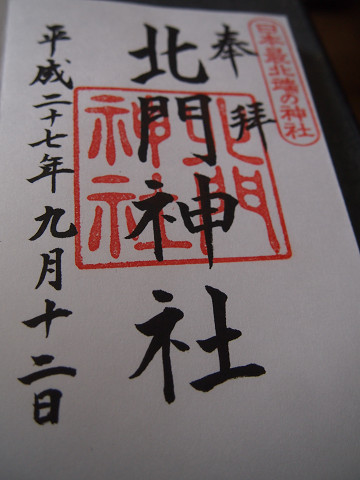 日本最北端の神社
奉拝
北門神社
北門神社
平成二十七年九月十二日